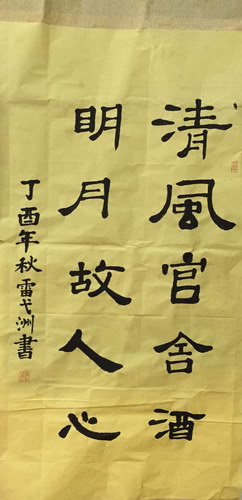 清風官舍酒
明月故人心
丁酉年秋雷弋洲書